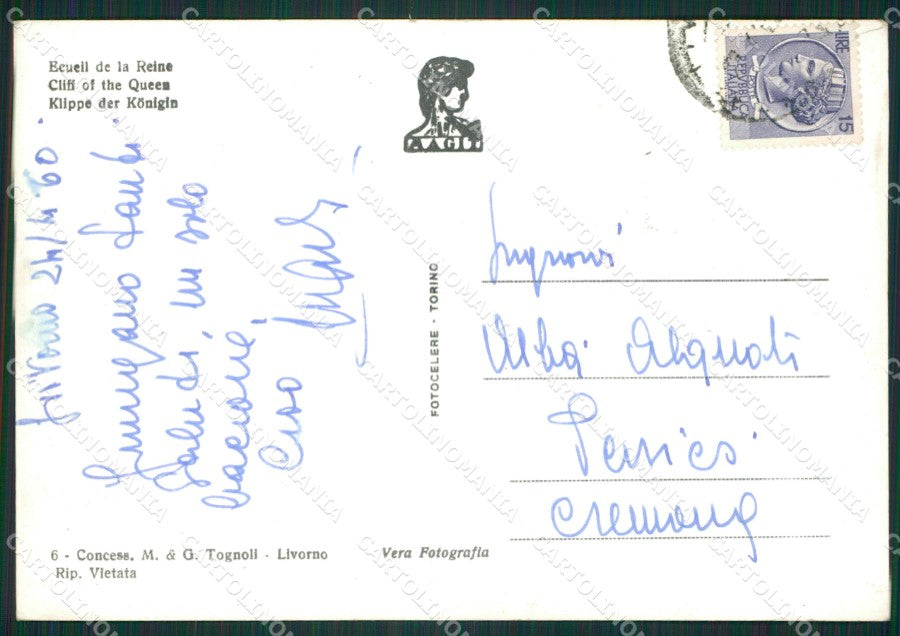 Ecueil de la Reine
Cliff of the Queen
Klippe der Königin
A.V.A.G.I.T.
REPUBBLICA ITALIANA
LIRE 15
Livorno 24/4 60.
Giungano tanti
saluti, un solo
bacione!
Ciao
FOTOCELERE - TORINO
Signori
Alba
Cremona
6 - Concess. M. & G. Tognoli - Livorno
Rip. Vietata
Vera Fotografia
CARTOLINOMANIA